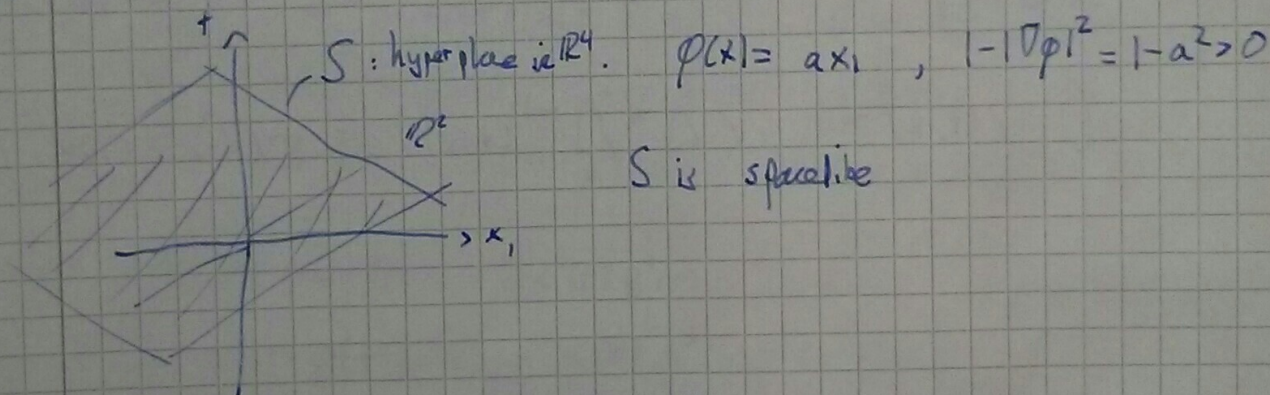 t
S : hyperplane in ℝ⁴. φ(x) = ax₁ , 1-|∇φ|² = 1-a²>0
ℝ²
S is spacelike
x₁